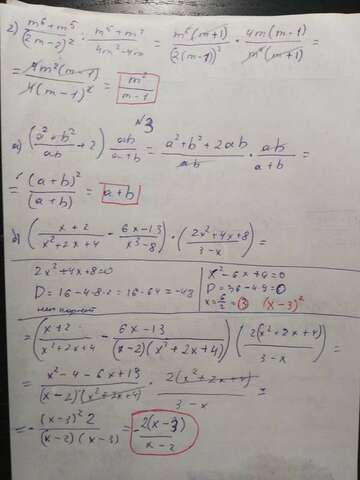 2) (m⁶ + m⁵)/(2m-2)² : (m⁵ + m⁴)/(4m² - 4m) = (m⁵(m+1))/(2(m-1))² · (4m(m-1))/(m⁴(m+1)) =
= (4m²(m-1))/(4(m-1)²) = m²/(m-1)
№3
a) ((a² + b²)/ab + 2) ab/(a+b) = (a² + b² + 2ab)/ab · ab/(a+b) =
= (a+b)²/(a+b) = a+b
б) ((x+2)/(x²+2x+4) - (6x-13)/(x³-8)) · ((2x²+4x+8)/(3-x)) =
2x²+4x+8=0
D = 16-4·8·2 = 16-64 = -48
нет корней
x²-6x+9=0
D = 36-4·9=0
x = 6/2 = 3 (x-3)²
= ((x+2)/(x²+2x+4) - (6x-13)/((x-2)(x²+2x+4))) (2(x²+2x+4)/(3-x)) =
= (x²-4-6x+13)/((x-2)(x²+2x+4)) · 2(x²+2x+4)/(3-x) =
= -((x-3)² 2)/((x-2)(x-3)) = -2(x-3)/(x-2)